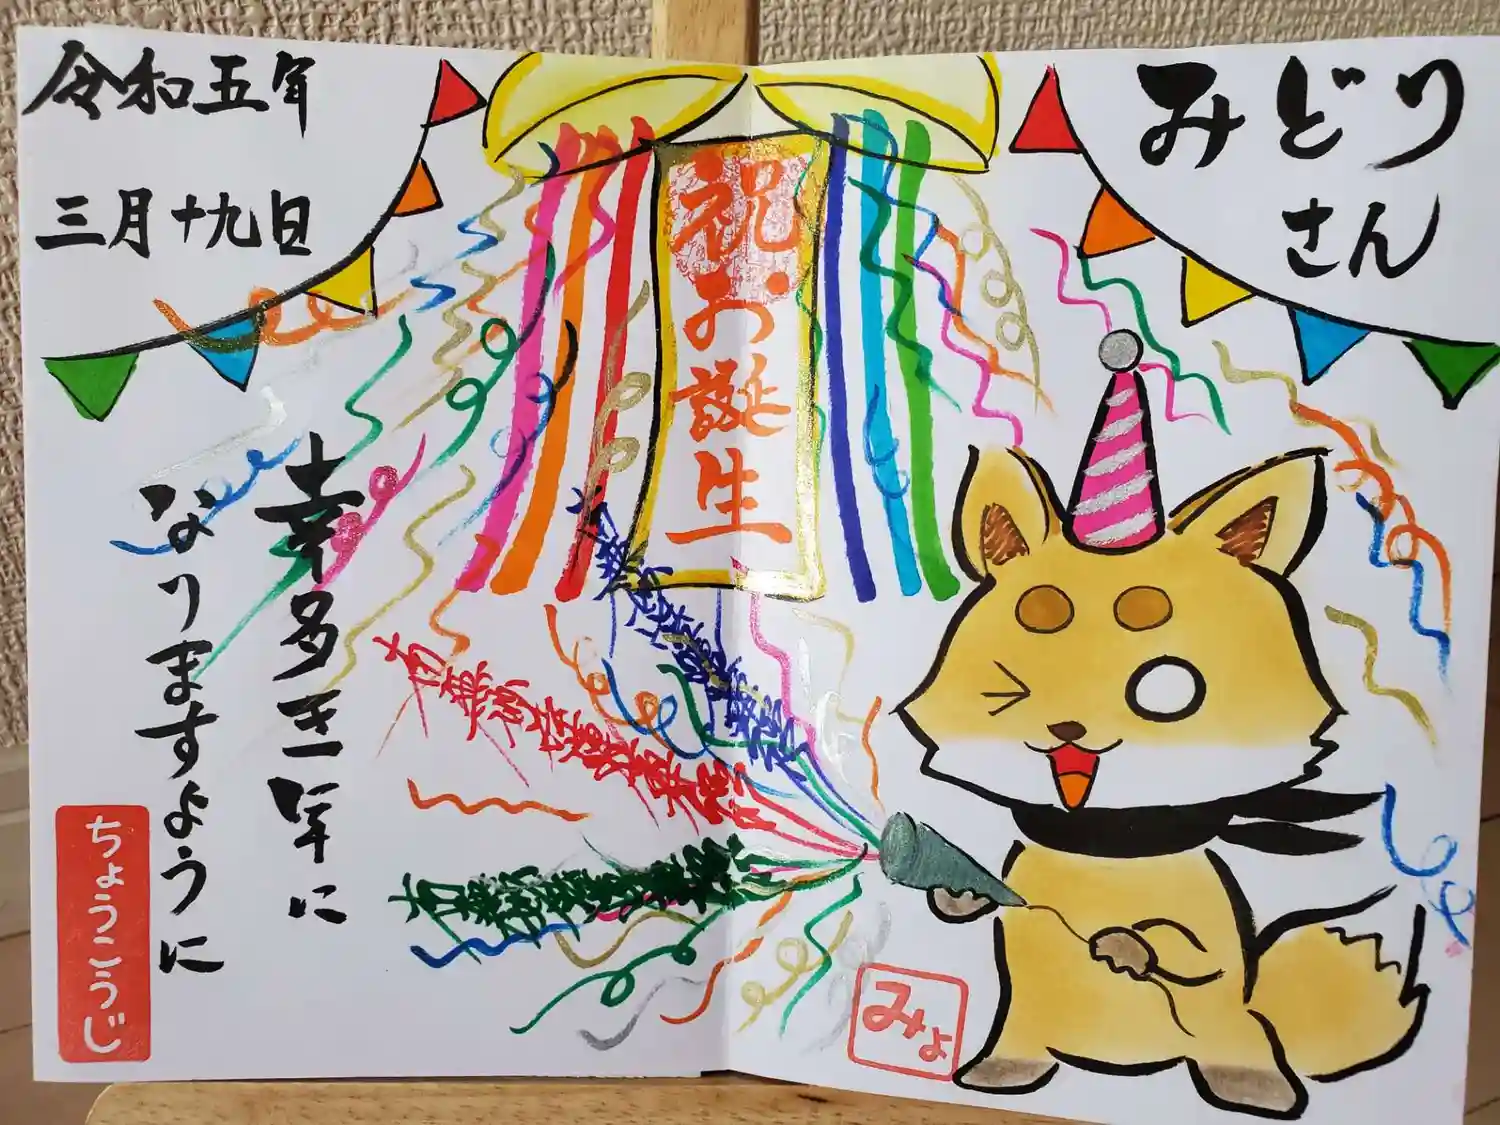 みどり
さん
祝お誕生
令和五年
三月十九日
幸多き一年に
なりますように
ちょうこうじ
みよ